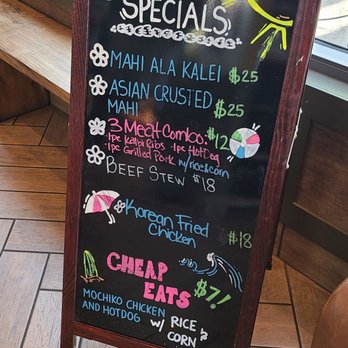 SPECIALS
MAHI ALA KALEI $25
ASIAN CRUSTED
MAHI $25
3 Meat Combo: $12
1pc Kalbi Ribs • 1pc Hot Dog
1pc Grilled Pork w/rice&corn
BEEF STEW $18
Korean Fried
Chicken $18
CHEAP
EATS $7!
MOCHIKO CHICKEN
AND HOTDOG w/ RICE &
CORN